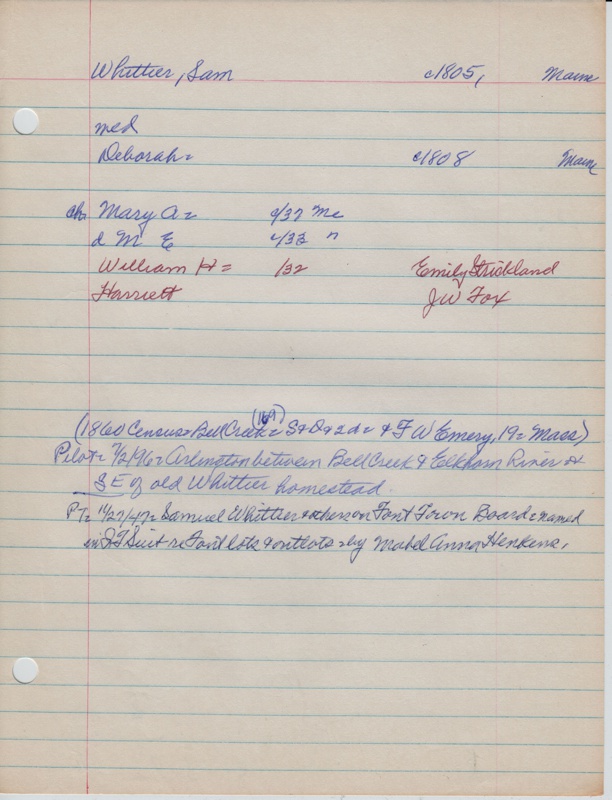 Whittier, Sam c1805, Maine
med
Deborah= c1808 Maine
ch. Mary A= c/37 Me
d M E c/38 "
William H= /32 Emily Strickland
Harriett J W Fox
(169)
(1860 Census= Bell Creek= S & D & 2 d= & F W Emery, 19= Mass)
Pilot= 7/2/96= Arlington between Bell Creek & Elkhorn River &
SE of old Whittier homestead.
PT= 11/27/47= Samuel Whittier & others on Font Town Board= named
in Suit re Font lots & outlots =by Mabel Anna Henkens,